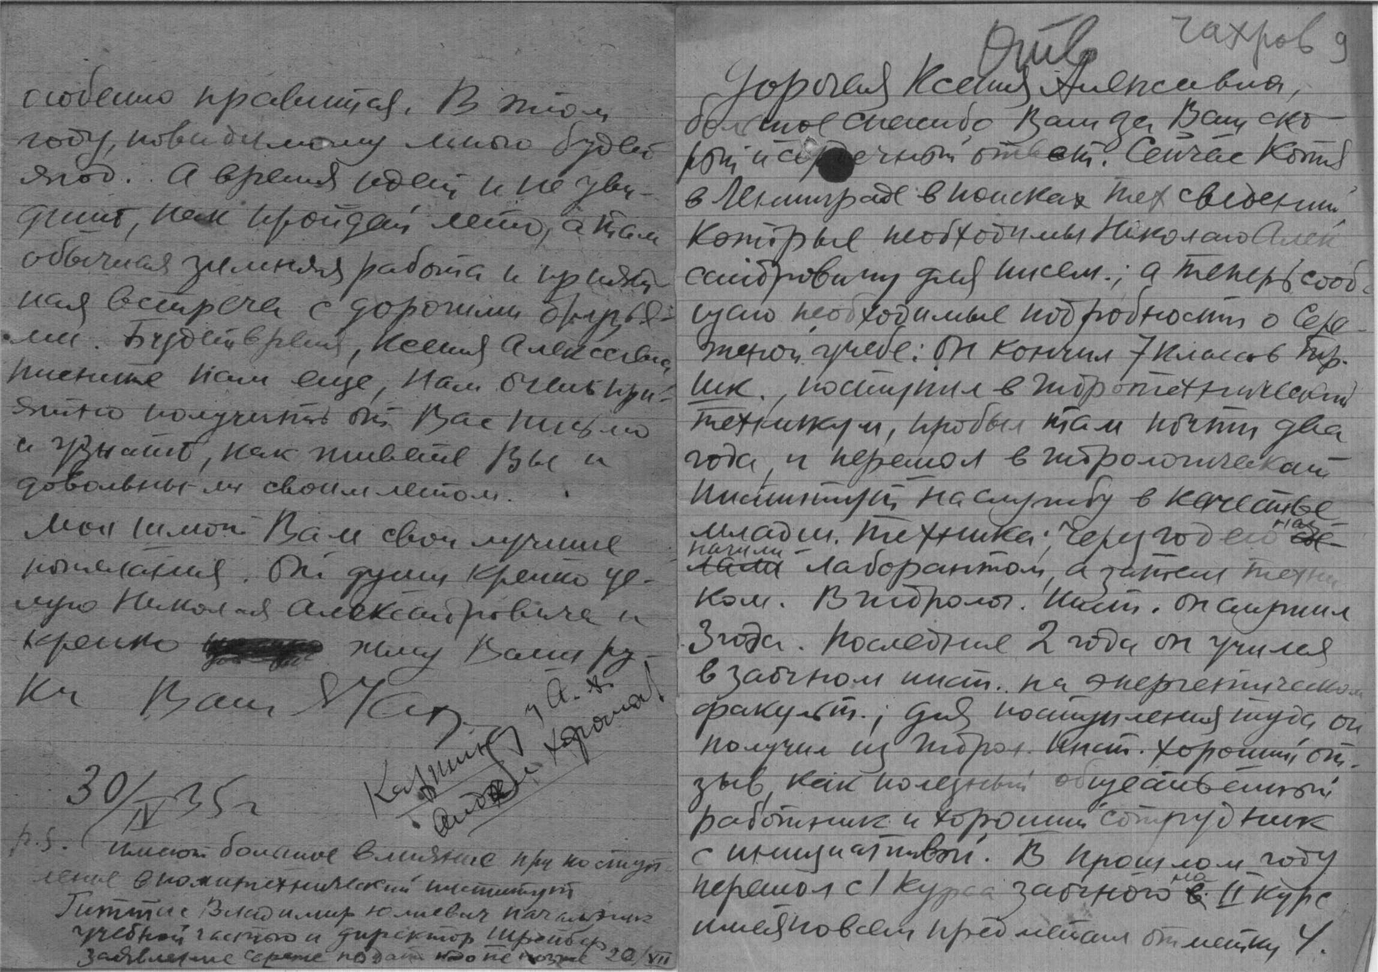 Отв
чахров 9
Дорогая Ксения Алексевна,
большое спасибо Вам за Ваш ско-
рый и сердечный ответ. Сейчас Котя
в Ленинграде в поисках тех сведений
которые необходимы Николаю Алек
сандровичу для писем.; а теперь сооб-
щаю необходимые подробности о Сере-
жиной учебе: он кончил 7 классов тр.
шк., поступил в гидротехнический
техникум, пробыл там почти два
года, и перешол в гидрологический
институт на службу в качестве
младш. техника; через год его наз
начили лаборантом, а затем техни
ком. В гидролог. Инст. он служил
3 года. Последние 2 года он учился
в заочном инст. на энергетическом
факульт.; для поступления туда он
получил из гидрол. Инст. хороший от-
зыв, как полезный общественный
работник и хороший сотрудник
с инициативой. В прошлом году
перешол с I курса заочного на II курс
имея по всем предметам отметку 4.
особенно нравится. В этом
году, повидимому много будет
ягод. А время идет и не уви-
дишь, как пройдет лето, а там
обычная зимняя работа и прият-
ная встреча с дорогими друзья-
ми. Будет время, Ксения Алексеевна
пишите нам еще, нам очень при-
ятно получить от Вас письмо
и узнать, как живете Вы и
довольны-ли своим летом.
Мои шлют Вам свои лучшие
пожелания. От души крепко це-
лую Николая Александровича и
крепко жму Вашу ру-
ку Ваш
30/IV 35 г
p.s. имеют большое влияние при поступ-
ление в политехнический институт
Владимир Юлиевич начальник
учебной частью и директор Шрейбер
заявление Сереже подать надо не позже 20/VII